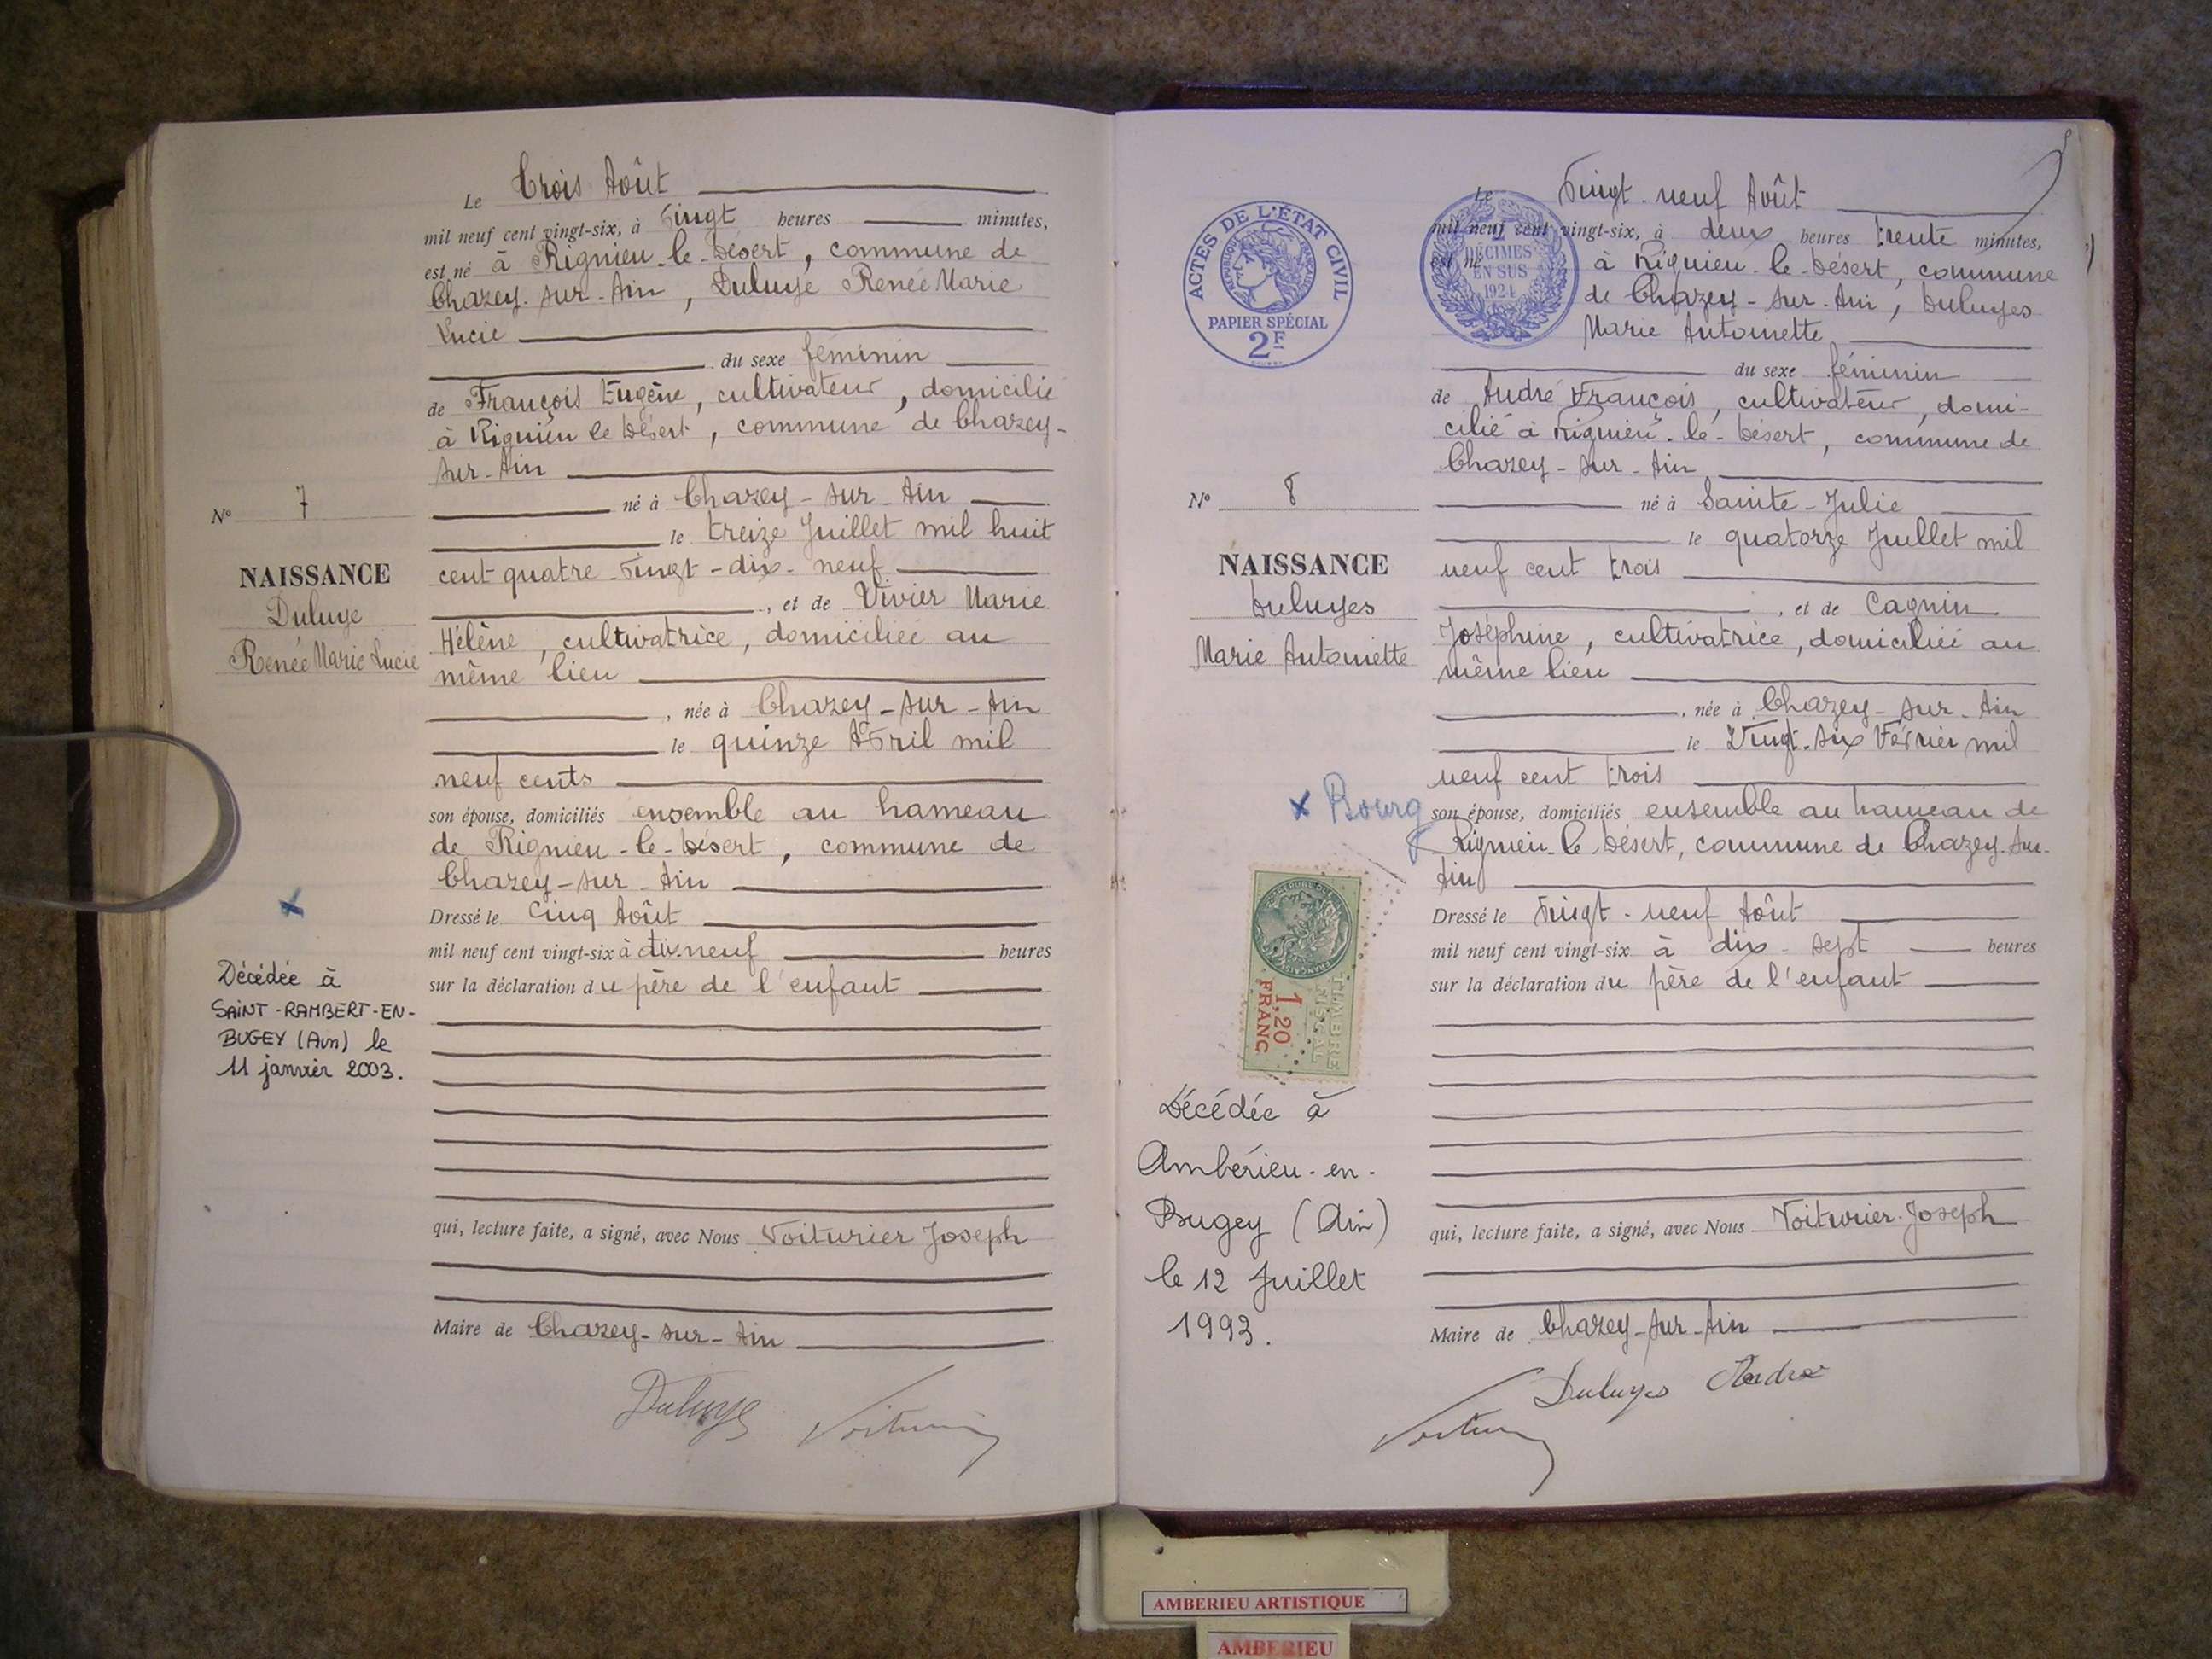 Le Trois Août
mil neuf cent vingt-six, à vingt heures minutes,
est né à Rignieu-le-Désert, commune de
Chazey-sur-Ain, Duluye Renée Marie
Lucie
du sexe féminin
de François Eugène, cultivateur, domicilié
à Rignieu le Désert, commune de Chazey-
sur-Ain
né à Chazey-sur-Ain
le treize Juillet mil huit
cent quatre-vingt-dix-neuf
, et de Vivier Marie
Hélène, cultivatrice, domiciliée au
même lieu
, née à Chazey-sur-Ain
le quinze Avril mil
neuf cents
son épouse, domiciliés ensemble au hameau
de Rignieu-le-Désert, commune de
Chazey-sur-Ain
Dressé le Cinq Août
mil neuf cent vingt-six à dix-neuf heures
sur la déclaration du père de l'enfant
qui, lecture faite, a signé, avec Nous Voiturier Joseph
Maire de Chazey-sur-Ain
Duluye Voiturier
N° 7
NAISSANCE
Duluye
Renée Marie Lucie
Décédée à
SAINT-RAMBERT-EN-
BUGEY (Ain) le
11 janvier 2003.
ACTES DE L'ÉTAT CIVIL
PAPIER SPÉCIAL
2F
DÉCIMES
EN SUS
1924
Le Vingt-neuf Août
mil neuf cent vingt-six, à deux heures trente minutes,
est né à Rignieu-le-Désert, commune
de Chazey-sur-Ain, Duluyes
Marie Antoinette
du sexe féminin
de André François, cultivateur, domi-
cilié à Rignieu-le-Désert, commune de
Chazey-sur-Ain
né à Sainte-Julie
le quatorze Juillet mil
neuf cent trois
, et de Cagnin
Joséphine, cultivatrice, domiciliée au
même lieu
, née à Chazey-sur-Ain
le Vingt-six Février mil
neuf cent trois
son épouse, domiciliés ensemble au hameau de
Rignieu-le-Désert, commune de Chazey-sur-
Ain
Dressé le Vingt-neuf Août
mil neuf cent vingt-six à dix-sept heures
sur la déclaration du père de l'enfant
qui, lecture faite, a signé, avec Nous Voiturier Joseph
Maire de Chazey-sur-Ain
Duluyes André
Voiturier
N° 8
NAISSANCE
Duluyes
Marie Antoinette
x Bourg
TIMBRE
FISCAL
1,20
FRANC
Décédée à
Ambérieu-en-
Bugey (Ain)
le 12 Juillet
1993.
AMBERIEU ARTISTIQUE
AMBERIEU